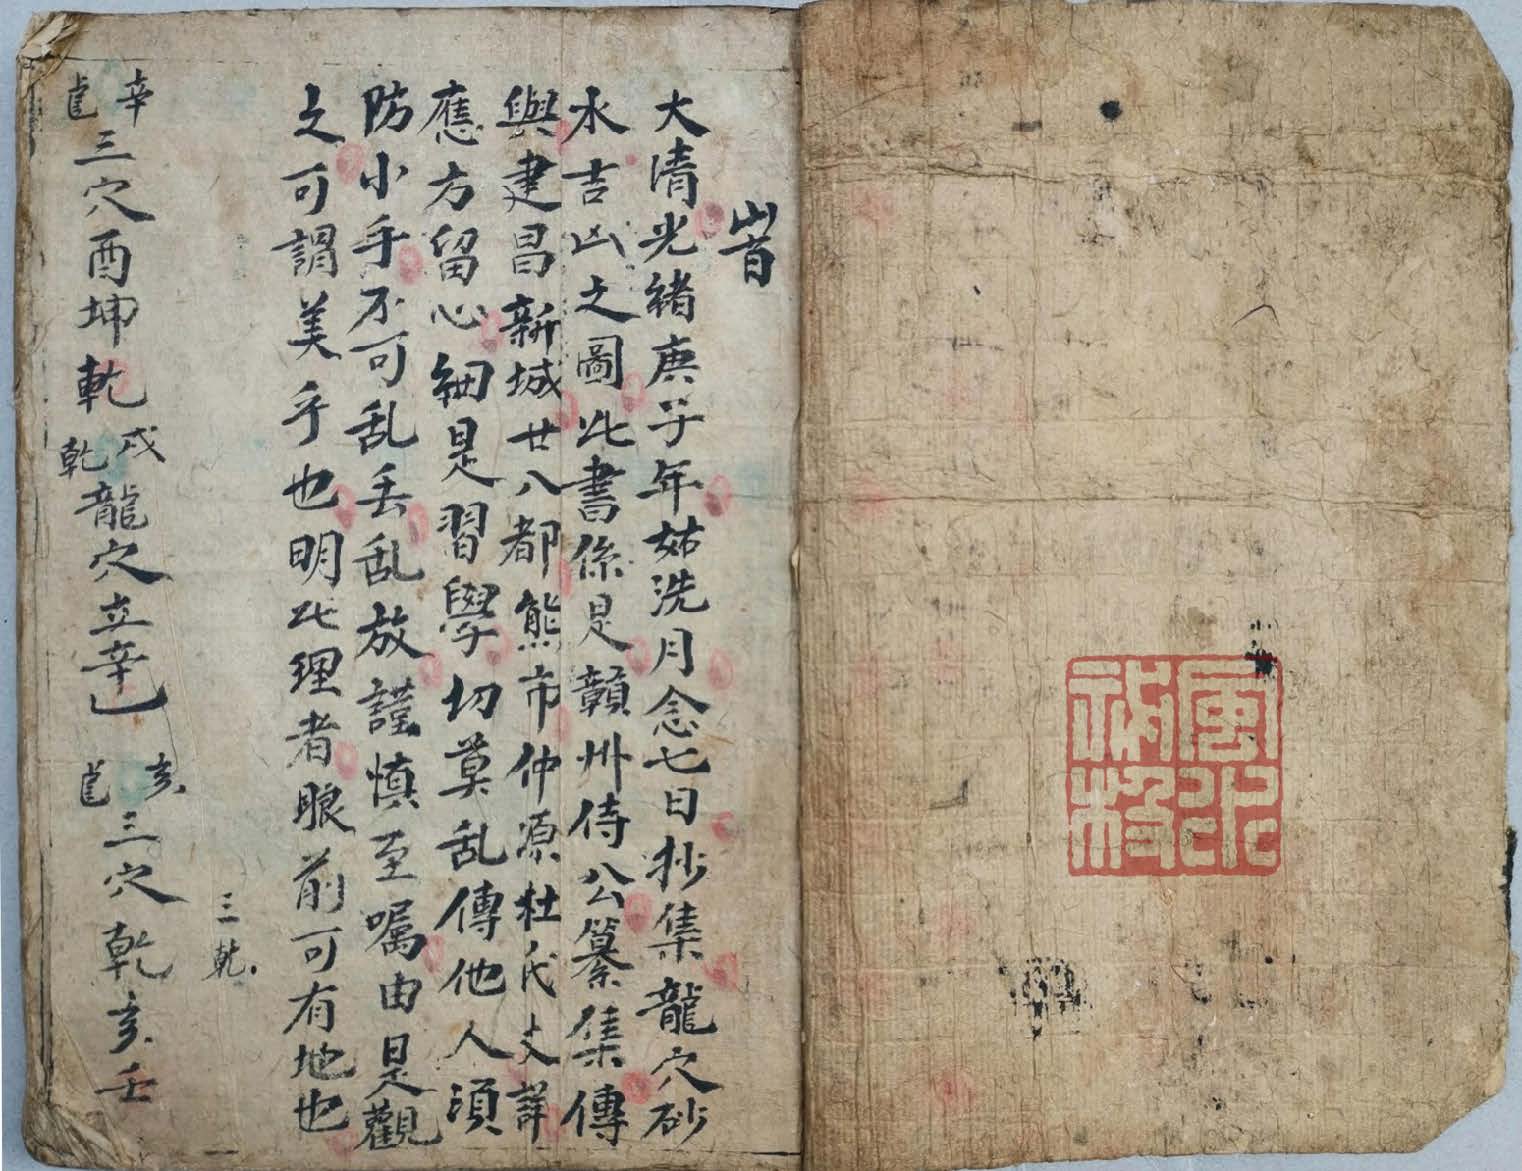 大清光緒庚子年姑洗月念七日抄集龍穴砂
水吉凶之圖此書係是贛州侍公纂集傳
與建昌新城廿八都熊市仲源杜氏丈諱
應方留心細是習學切莫乱傳他人須
防小手不可乱丢乱放謹慎至嘱由是觀
之可謂美乎也明此理者眼前可有地也
三乾
辛
三穴酉坤乾
戌
乾
龍穴立辛
亥
三穴乾亥壬
風水
秘